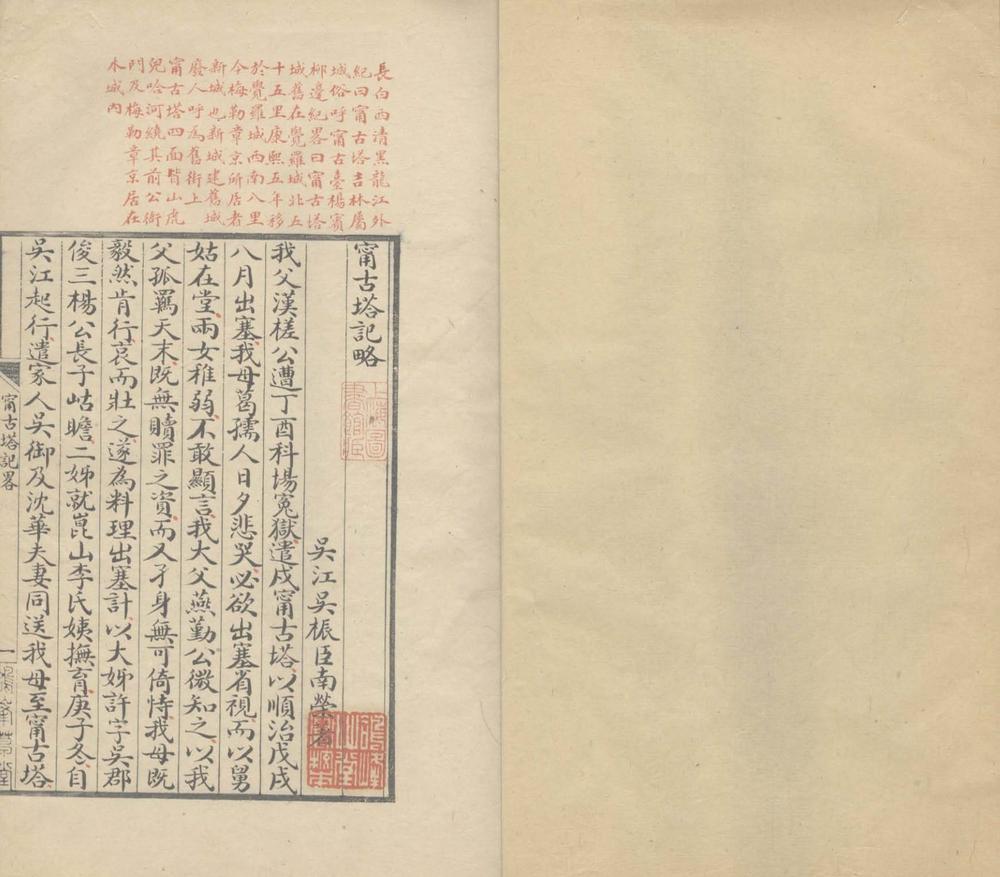 長白西清黑龍江外
紀曰甯古塔吉林屬
城俗呼甯古臺楊賓
柳邊紀畧曰甯古塔
城舊在覺羅城北五
十五里康熙五年移
於覺羅城西南八里
今梅勒章京所居者
新城也新城建舊城
廢人呼為舊街上
甯古塔四面皆山虎
兒哈河繞其前公衙
門及梅勒章京居在
木城內
甯古塔記略
吳江吳桭臣南榮著
我父漢槎公遭丁酉科場冤獄遣戍甯古塔以順治戊戌
八月出塞我母葛孺人日夕悲哭必欲出塞省視而以舅
姑在堂兩女稚弱不敢顯言我大父燕勤公微知之以我
父孤羈天末既無贖罪之資而又孑身無可倚恃我母既
毅然肯行哀而壯之遂為料理出塞計以大姊許字吳郡
俊三楊公長子岵瞻二姊就崑山李氏姨撫育庚子冬自
吳江起行遣家人吳御及沈華夫妻同送我母至甯古塔
甯古塔記畧
一